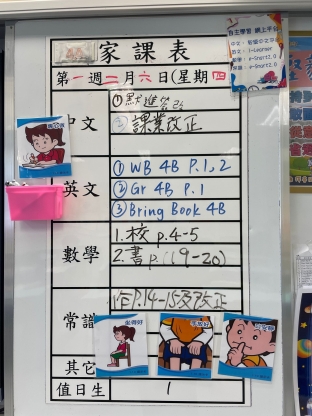 家課表
第一週二月六日(星期四)
自主學習 網上平台
中文
①默進管改
②課業改正
英文
① WB 4B P.1,2
② Gr 4B P.1
③ Bring Book 4B
數學
1.校 p.4-5
2.書 p.(19-20)
常識
作P.14-15及改正
坐得好
手放好
其它
值日生
1